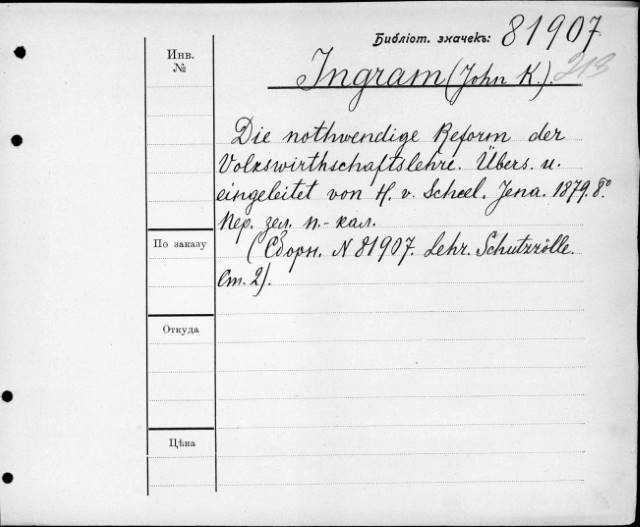 Библіот. значекъ: 81907
Инв.
№
Ingram (John K.). 213
Die nothwendige Reform der
Volkswirthschaftslehre. Übers. u.
eingeleitet von H. v. Scheel. Jena. 1879. 8°
Пер. зел. п.-кал.
По заказу
(Сборн. N 81907. Lehr. Schutzzölle.
Ст. 2).
Откуда
Цѣна